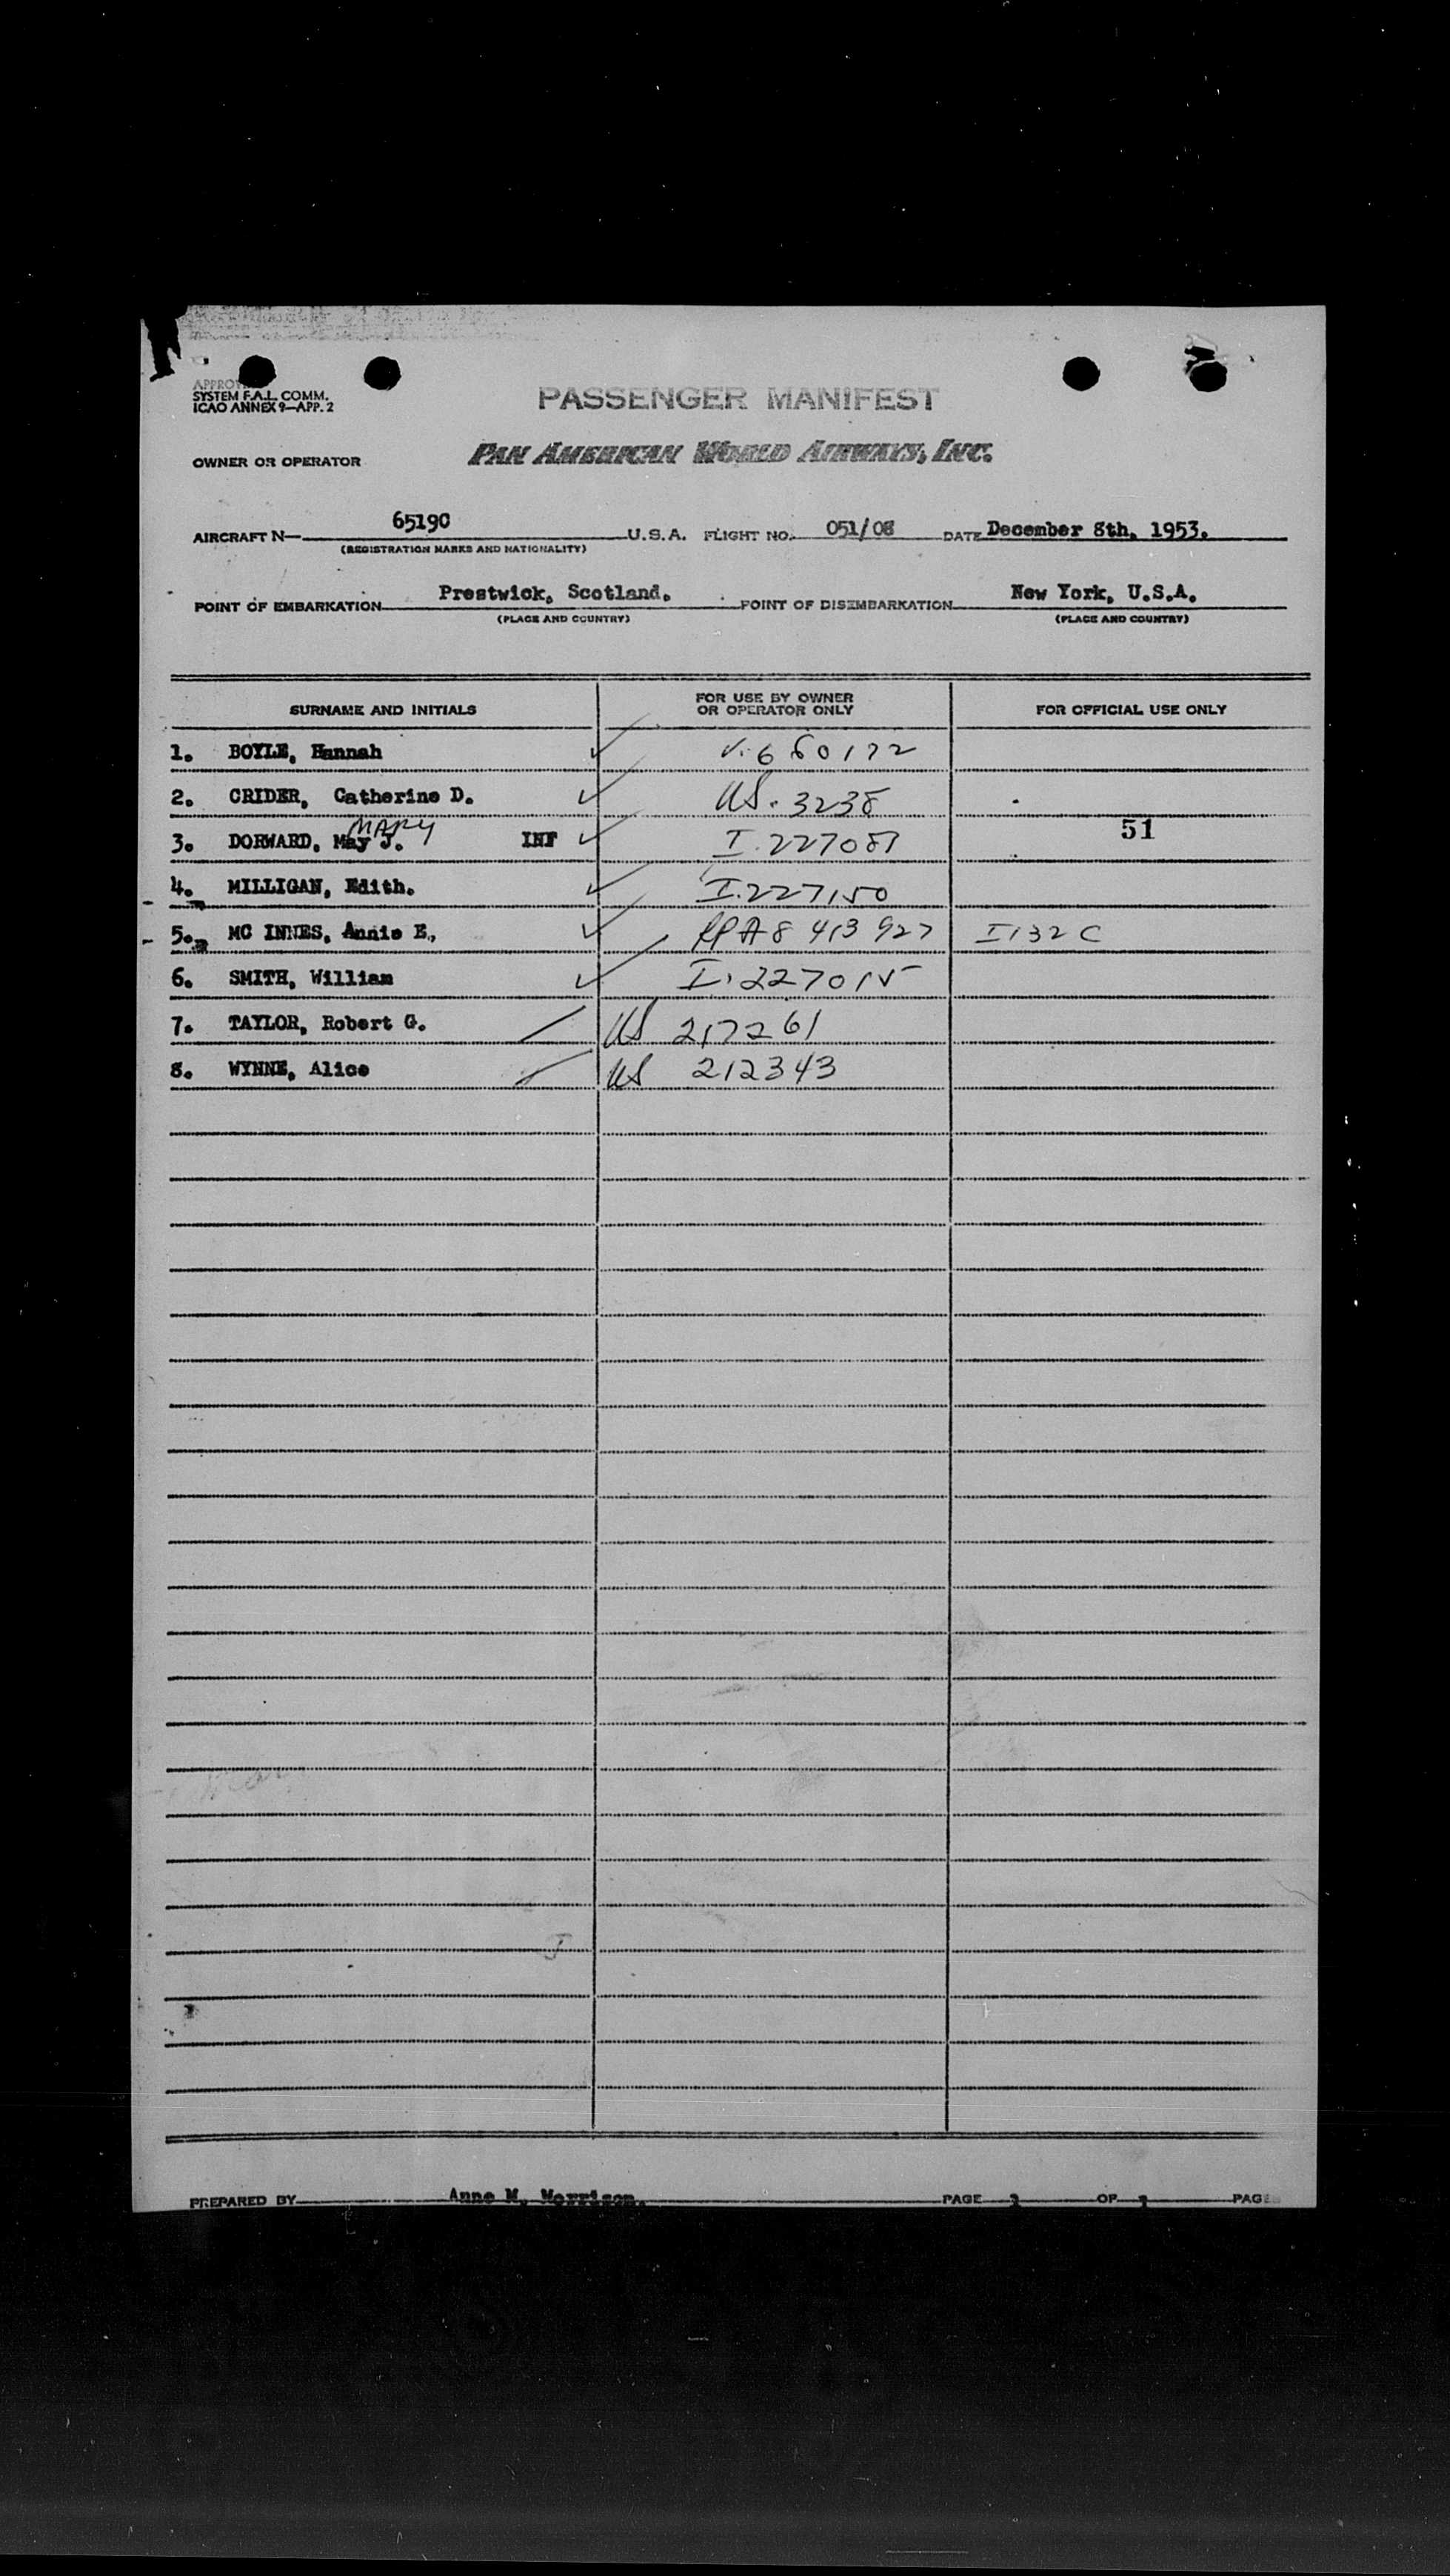 SYSTEM F.A.L. COMM.
ICAO ANNEX 9—APP. 2
PASSENGER MANIFEST
OWNER OR OPERATOR PAN AMERICAN WORLD AIRWAYS, INC.
AIRCRAFT N— 6519C U.S.A. FLIGHT NO. 051/08 DATE December 8th, 1953.
(REGISTRATION MARKS AND NATIONALITY)
POINT OF EMBARKATION Prestwick, Scotland. POINT OF DISEMBARKATION New York, U.S.A.
(PLACE AND COUNTRY) (PLACE AND COUNTRY)
SURNAME AND INITIALS FOR USE BY OWNER OR OPERATOR ONLY FOR OFFICIAL USE ONLY
1. BOYLE, Hannah ✓ V. 680172
2. CRIDER, Catherine D. ✓ US. 3238
MARY
3. DORWARD, May J. INF ✓ I. 227087 51
4. MILLIGAN, Edith. ✓ I. 227150
5. MC INNES, Annie E., ✓ RPA8 413 927 I132C
6. SMITH, William ✓ I. 227015
7. TAYLOR, Robert G. US 217261
8. WYNNE, Alice US 212343
PREPARED BY Anne M. Morrison. PAGE OF PAGES